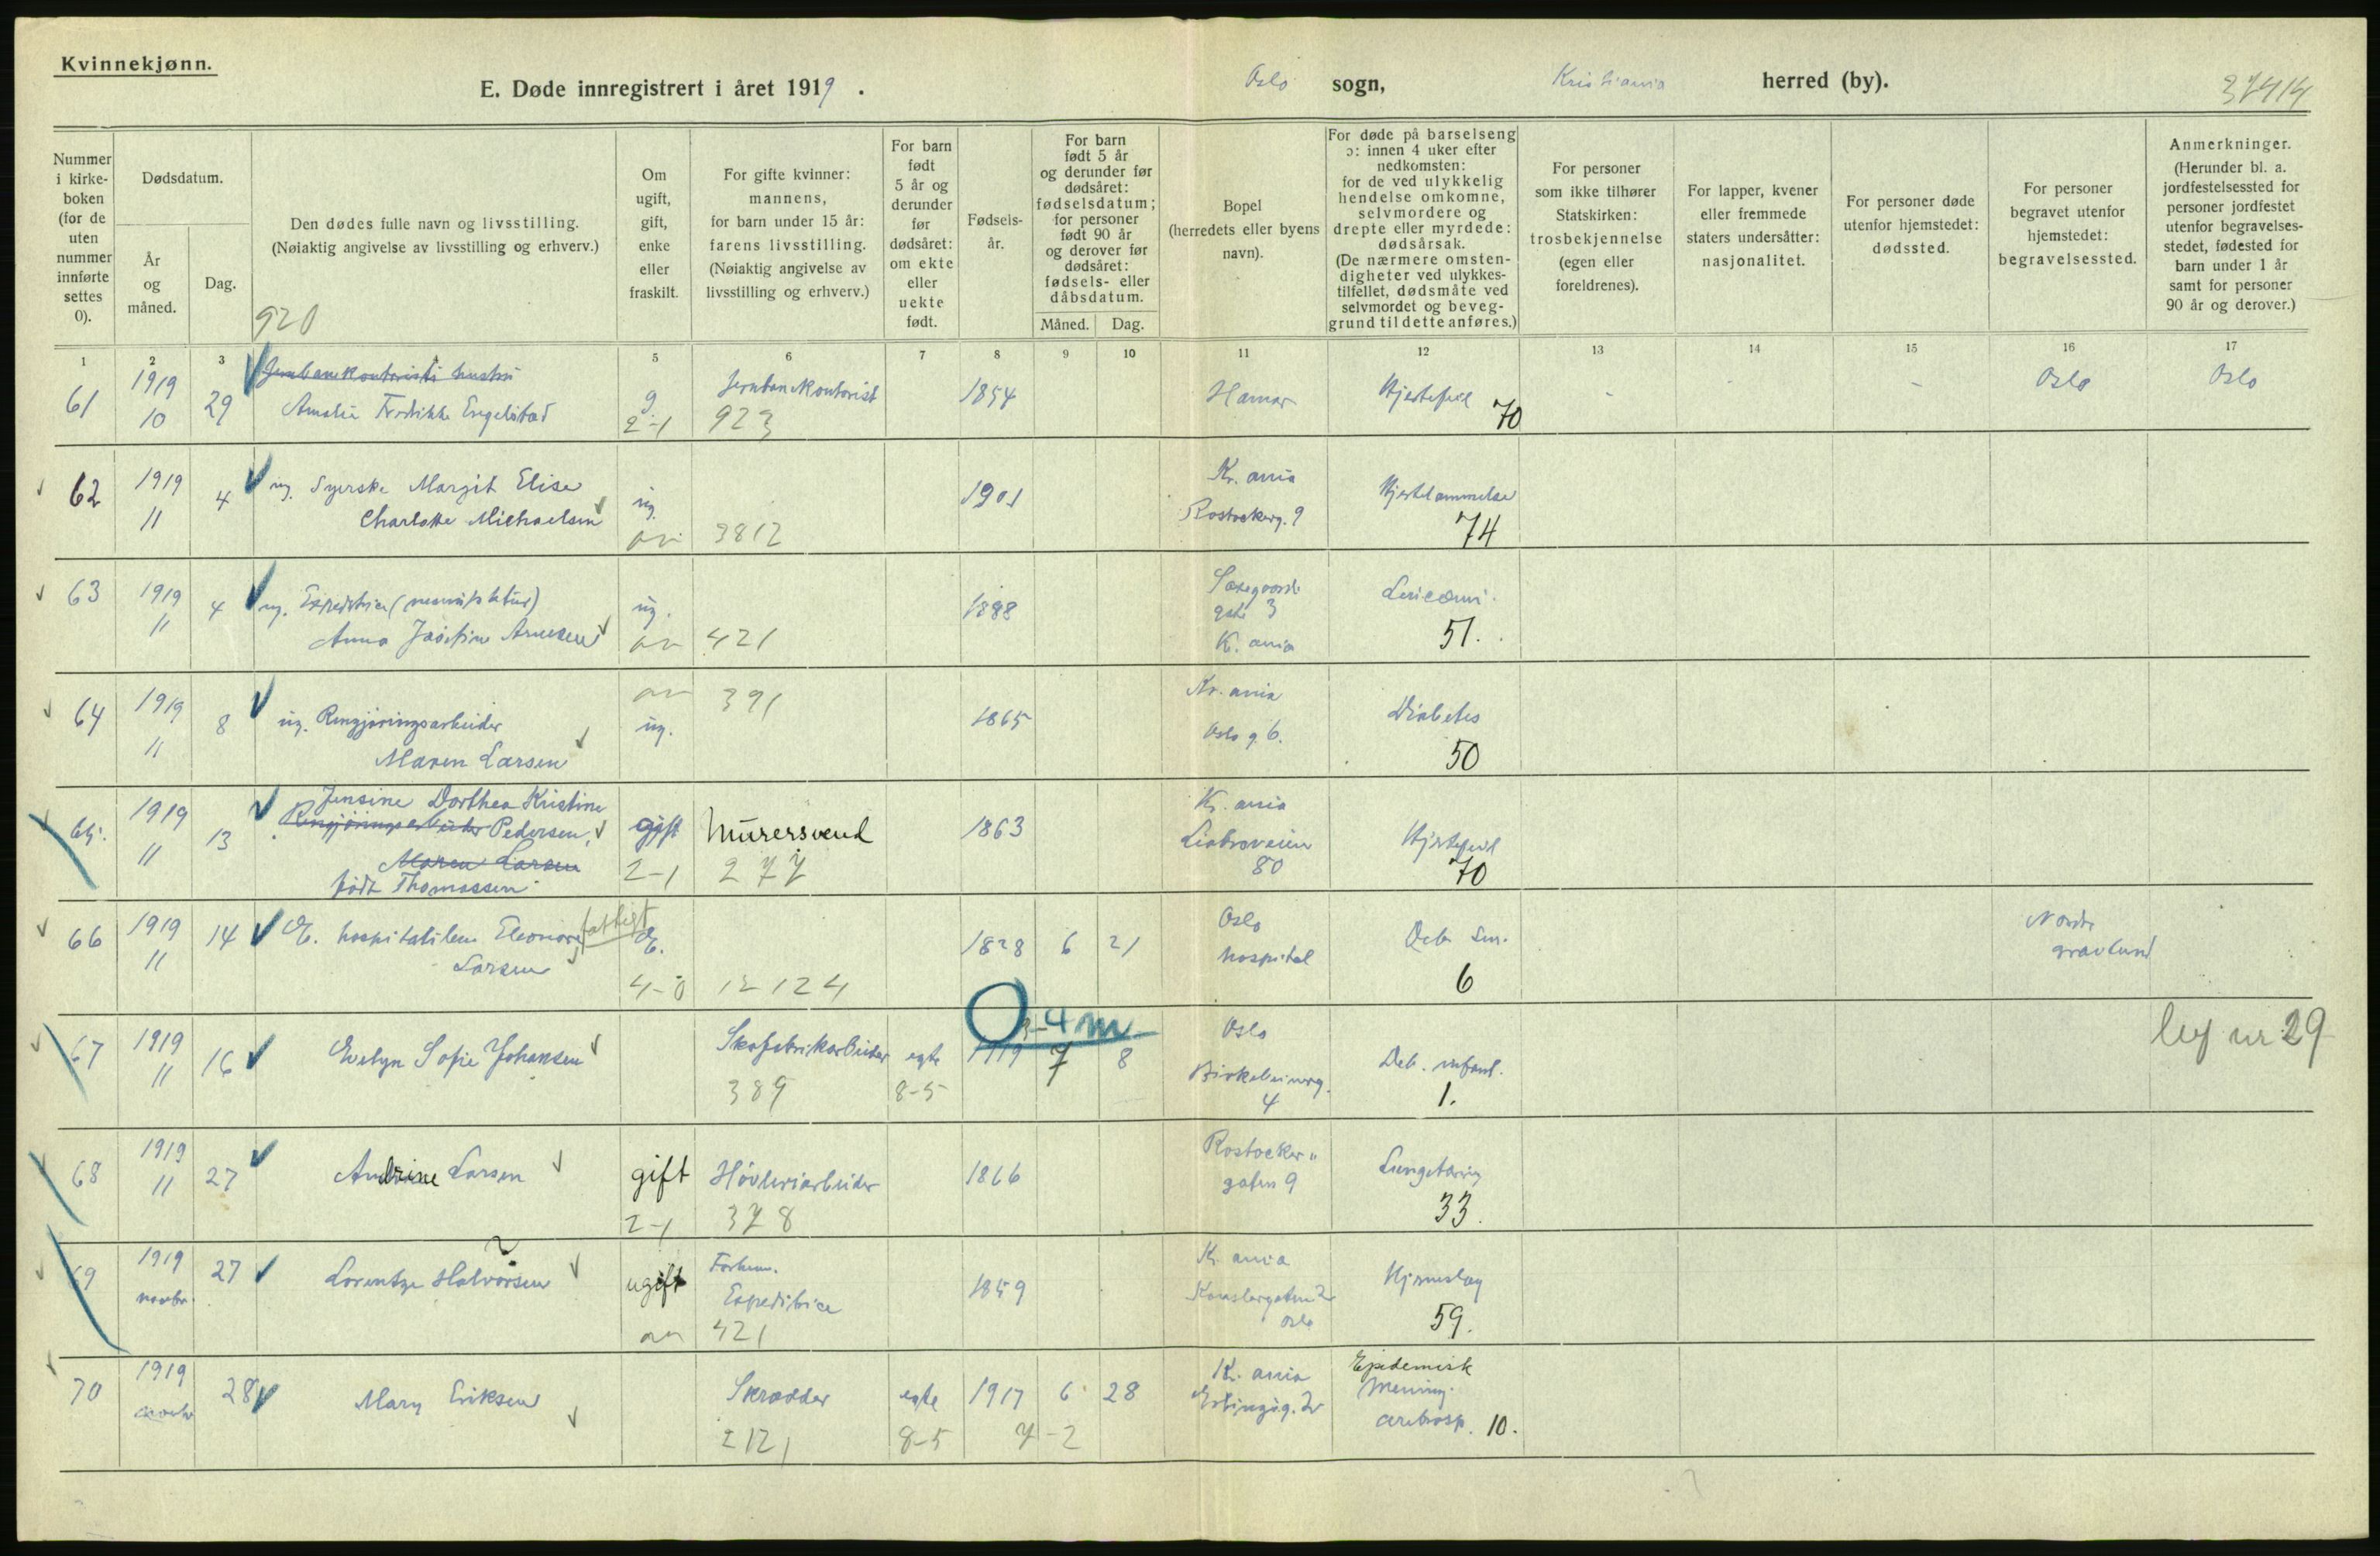 Kvinnekjønn.
E. Døde innregistrert i året 1919.
Oslo sogn, Kristiania herred (by).
37414
Nummer i kirke-boken (for de uten nummer innførte settes 0).
Dødsdatum.
År og måned.
Dag.
Den dødes fulle navn og livsstilling.
(Nøiaktig angivelse av livsstilling og erhverv.)
920
Om ugift, gift, enke eller fraskilt.
For gifte kvinner: mannens, for barn under 15 år: farens livsstilling.
(Nøiaktig angivelse av livsstilling og erhverv.)
For barn født 5 år og derunder før dødsåret: om ekte eller uekte født.
Fødsels-år.
For barn født 5 år og derunder før dødsåret: fødselsdatum; for personer født 90 år og derover før dødsåret: fødsels- eller dåbsdatum.
Måned. Dag.
Bopel (herredets eller byens navn).
For døde på barselseng ɔ: innen 4 uker efter nedkomsten: for de ved ulykkelig hendelse omkomne, selvmordere og drepte eller myrdede: dødsårsak.
(De nærmere omsten-digheter ved ulykkes-tilfellet, dødsmåte ved selvmordet og beveg-grund til dette anføres.)
For personer som ikke tilhører Statskirken: trosbekjennelse (egen eller foreldrenes).
For lapper, kvener eller fremmede staters undersåtter: nasjonalitet.
For personer døde utenfor hjemstedet: dødssted.
For personer begravet utenfor hjemstedet: begravelsessted.
Anmerkninger.
(Herunder bl. a. jordfestelsessted for personer jordfestet utenfor begravelses-stedet, fødested for barn under 1 år samt for personer 90 år og derover.)
1 2 3 5 6 7 8 9 10 11 12 13 14 15 16 17
61 1919 10 29 Jernbanekontorists hustru
Amalie Fredrikke Engelstad g 2-1 Jernbanekontorist 923 1854 Hamar Hjertefeil 70 - - Oslo Oslo
62 1919 11 4 ug. Syerske Margit Elise
Charlotte Michaelsen ug. 3812 1901 Kr. ania Rostockerg. 9 Hjertelammelse 74
63 1919 11 4 ug. Expeditrice
Anna Josefine Arnesen ug. 421 1888 Saxegaards gate 3 K. ania 51.
64 1919 11 8 ug. Rengjøringsarbeider
Maren Larsen ug. 391 1865 Kr. ania Oslo g. 6. Diabetes 50
65. 1919 11 13 Jensine Dorthea Kristine
Rengjøringsarbeider Pedersen,
Maren Larsen
født Thomassen gift 2-1 Murersvend 277 1863 Kr. ania Liabroveien 80 Hjertefeil 70
66 1919 11 14 E. hospitalslem Eleonore fattigt
Larsen E. 4-0 12124 1828 6 21 Oslo hospital Deb. sen. 6 Nordre gravlund
67 1919 11 16 Evelyn Sofie Johansen Skofabrikarbeider 389 egte 8-5 3-4 m 1919 7 8 Oslo Birkebeinerg. 4 Deb. infant. 1. lev nr 29
68 1919 11 27 Andrine Larsen gift 2-1 Høvleriarbeider 378 1866 Rostocker" gaten 9 Lungetæring 33.
69 1919 novbr. 27 Lorentze Halvorsen ugift Forhenv. Expeditrice 421 1859 K. ania Kanslergaten 2 Oslo Hjerneslag 59.
70 1919 novbr 28 Mary Eriksen Skrædder 2121 egte 8-5 1917 6 28 7-2 Kr. ania Erlingsg. 2 Epidemisk Mening. cerebrosp. 10.